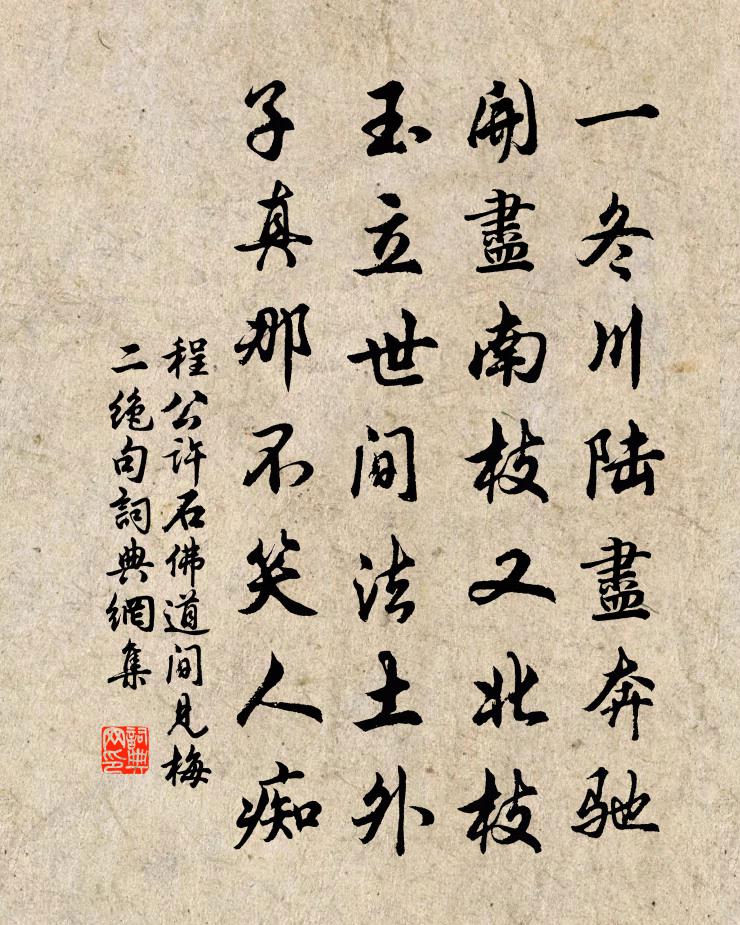 一冬川陆盡奔驰
開盡南枝又北枝
玉立世间法土外
子真那不笑人痴
程公许石佛道间见梅
二绝句詞典網集
詞典
网印